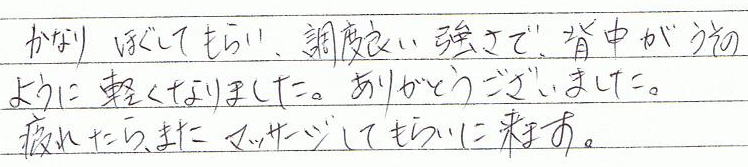 かなり ほぐしてもらい、調度良い強さで、背中がうその
ように軽くなりました。ありがとうございました。
疲れたら、また マッサージしてもらいに来ます。